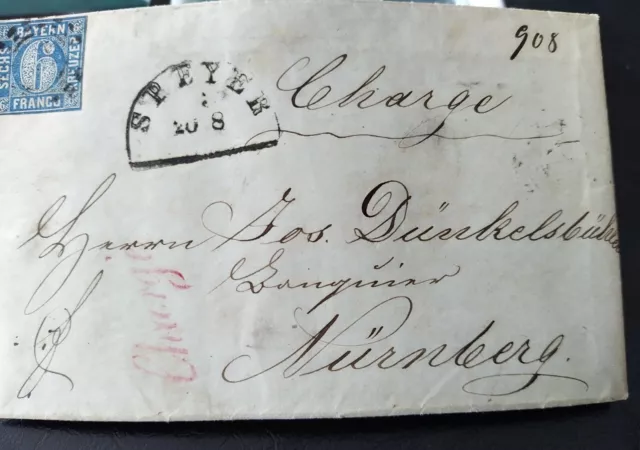 BAYERN
SECHS
KREUZER
6
FRANCO
908
SPEYER
20 8
Charge
Herrn Jos. Dünkelsbühler
Banquier
Nürnberg.